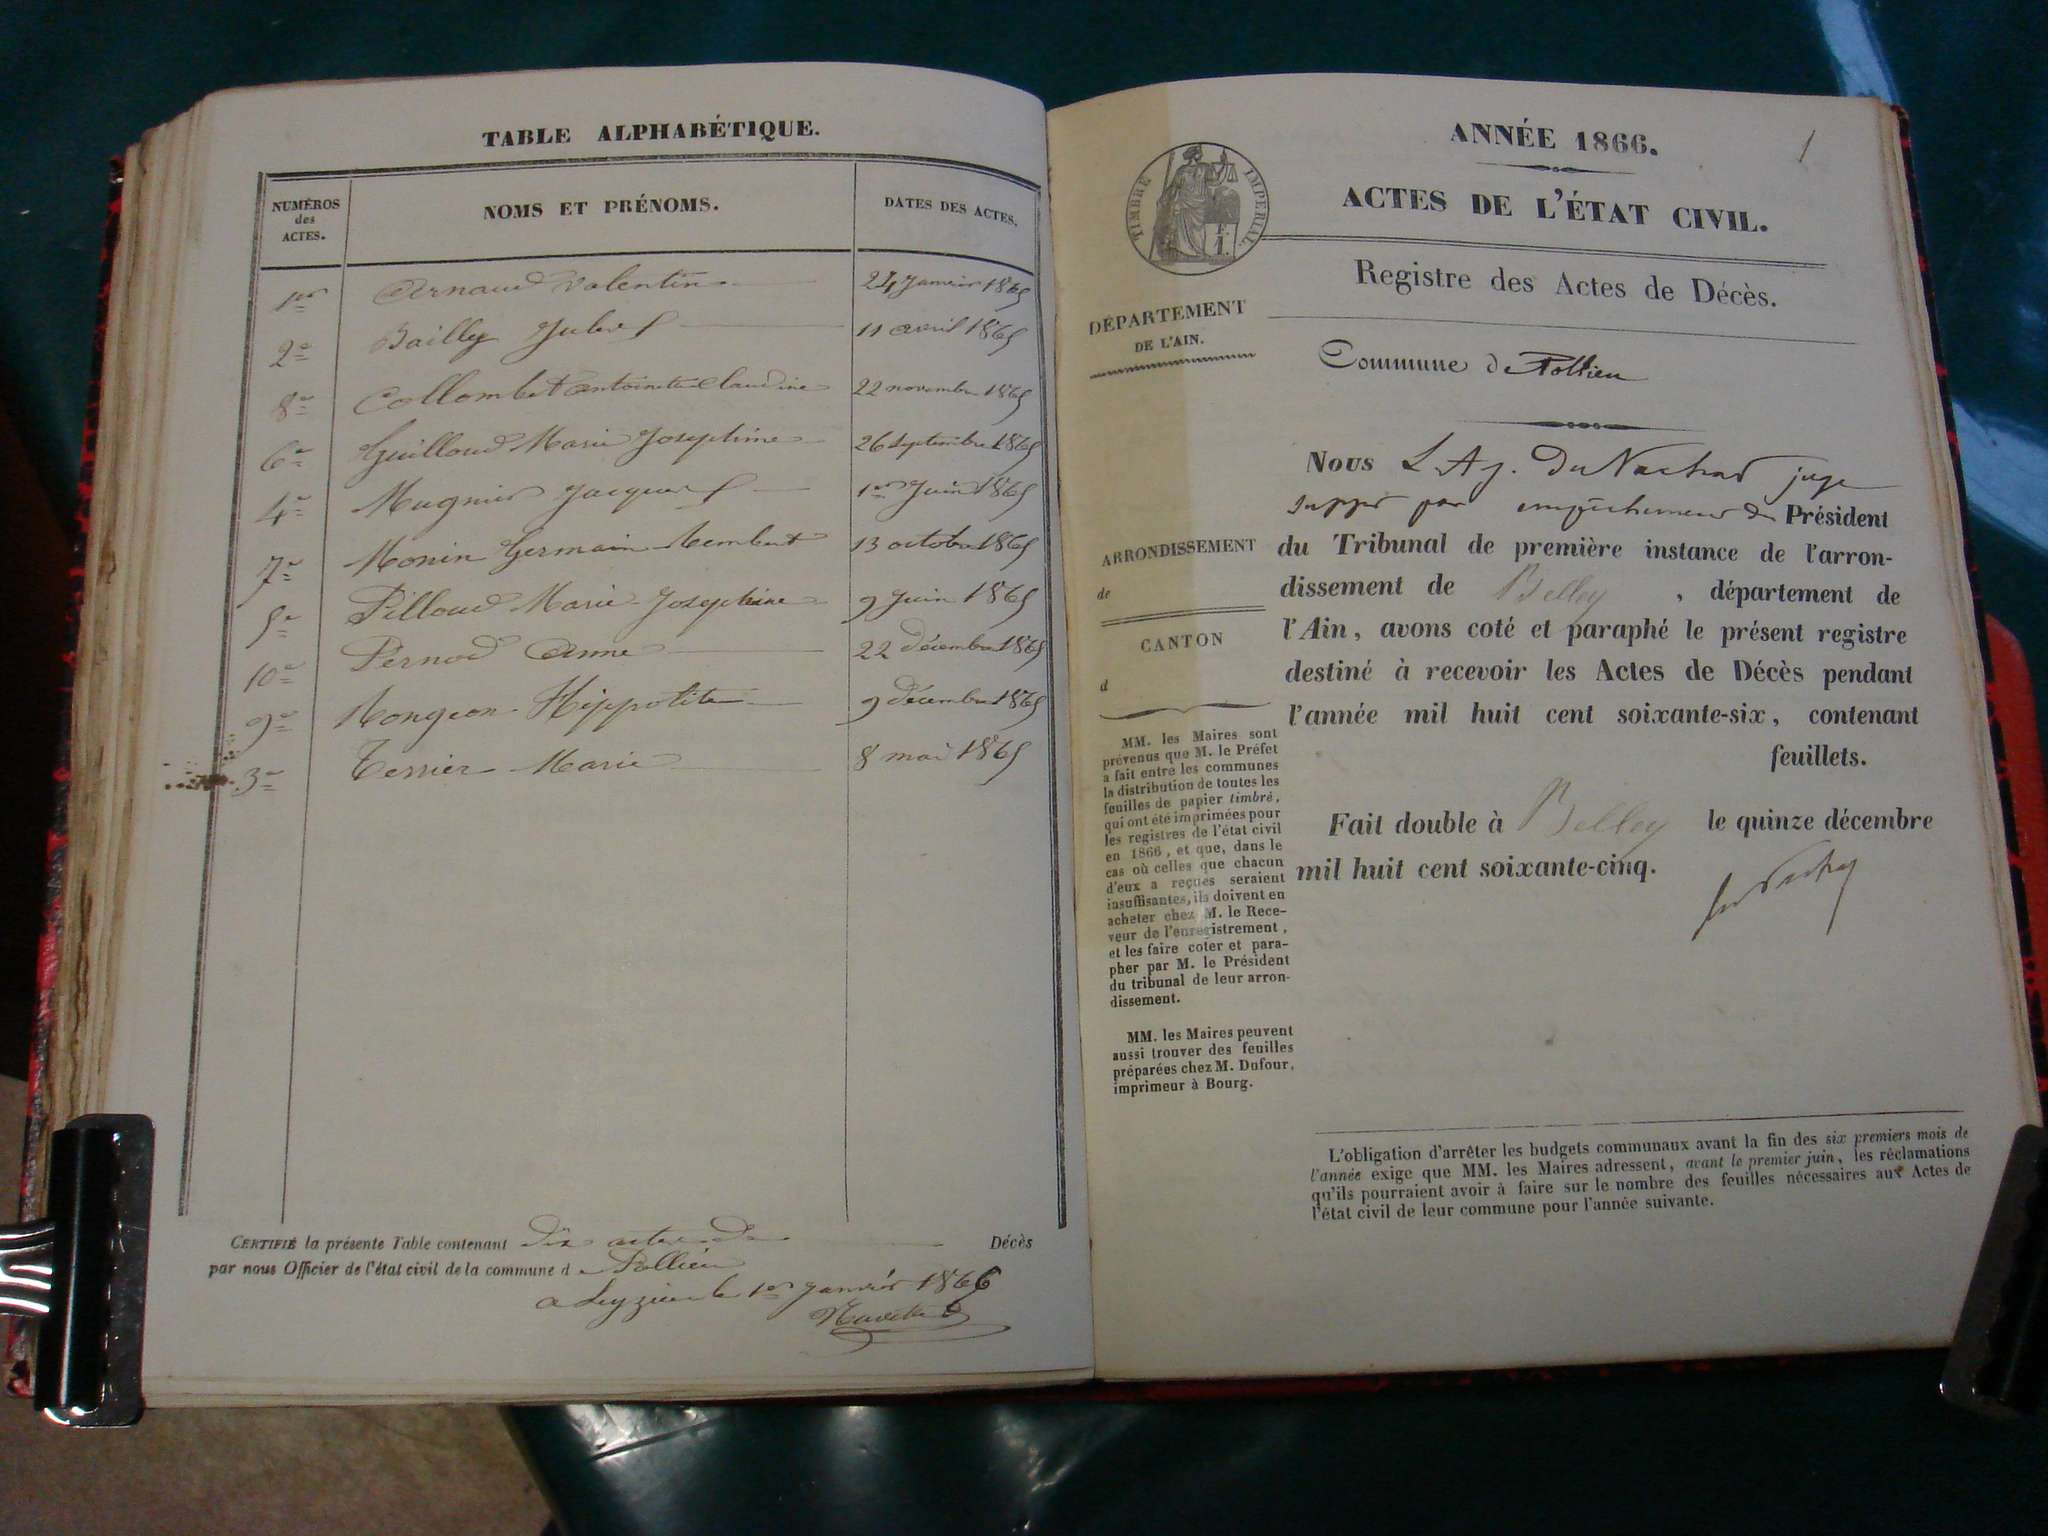 TABLE ALPHABÉTIQUE.
NUMÉROS
des
ACTES.
NOMS ET PRÉNOMS.
DATES DES ACTES.
1er Arnaud Valentin 24 Janvier 1865
2e Bailly Jules 11 avril 1865
8e Collombet antoinette Claudine 22 novembre 1865
6e Guilloud Marie Josephine 26 septembre 1865
4e Mugnier Jacques 1er Juin 1865
7e Monin Germain Rembert 13 octobre 1865
5e Pilloud Marie Josephine 9 Juin 1865
10e Pernod Anne 22 décembre 1865
9e Rongeon Hippolite 9 décembre 1865
3e Tessier Marie 8 mai 1865
CERTIFIÉ la présente Table contenant dix actes de Décès
par nous Officier de l'état civil de la commune d e Pollieu
a Leyzieu le 1er Janvier 1866
ANNÉE 1866.
1
ACTES DE L'ÉTAT CIVIL.
TIMBRE IMPERIAL
Registre des Actes de Décès.
DÉPARTEMENT
DE L'AIN.
Commune de Pollieu
Nous juge
supp par empêchement du Président
du Tribunal de première instance de l'arron-
dissement de Belley, département de
l'Ain, avons coté et paraphé le présent registre
destiné à recevoir les Actes de Décès pendant
l'année mil huit cent soixante-six, contenant
feuillets.
Fait double à Belley le quinze décembre
mil huit cent soixante-cinq.
ARRONDISSEMENT
de
CANTON
d
MM. les Maires sont
prévenus que M. le Préfet
a fait entre les communes
la distribution de toutes les
feuilles de papier timbré,
qui ont été imprimées pour
les registres de l'état civil
en 1866, et que, dans le
cas où celles que chacun
d'eux a reçues seraient
insuffisantes, ils doivent en
acheter chez M. le Rece-
veur de l'enregistrement,
et les faire coter et para-
pher par M. le Président
du tribunal de leur arron-
dissement.
MM. les Maires peuvent
aussi trouver des feuilles
préparées chez M. Dufour,
imprimeur à Bourg.
L'obligation d'arrêter les budgets communaux avant la fin des six premiers mois de
l'année exige que MM. les Maires adressent, avant le premier juin, les réclamations
qu'ils pourraient avoir à faire sur le nombre des feuilles nécessaires aux Actes de
l'état civil de leur commune pour l'année suivante.